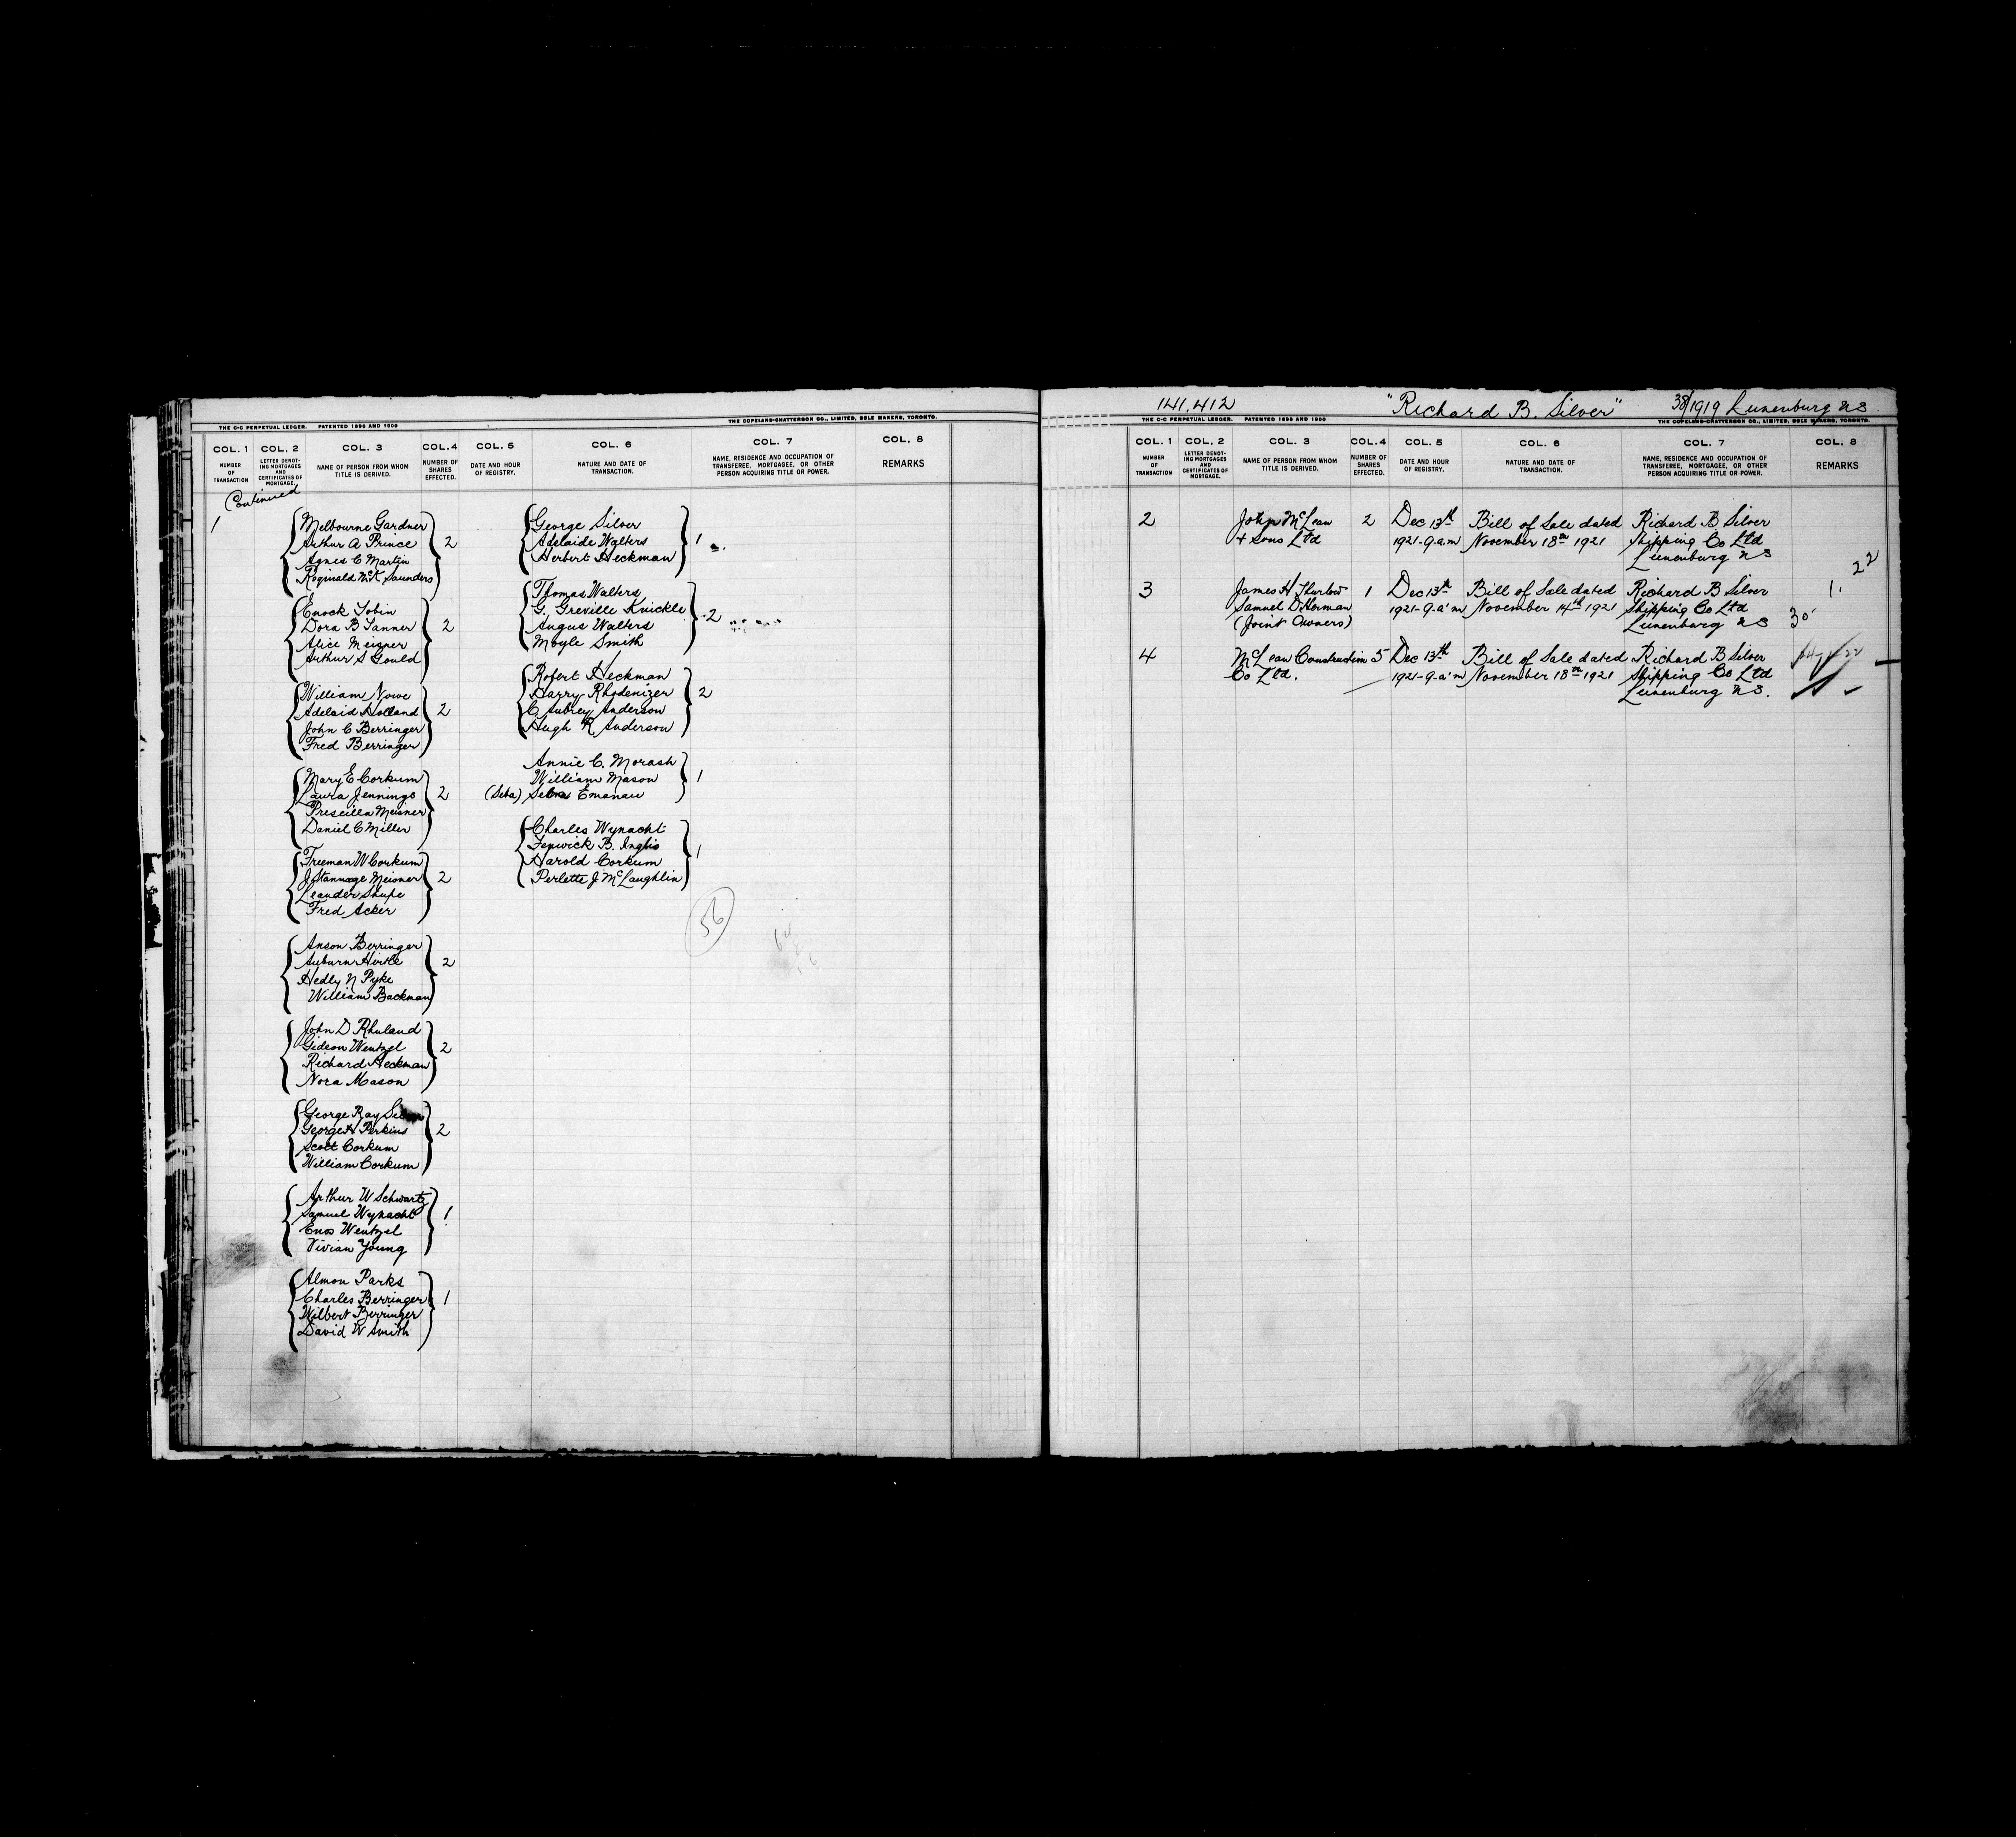 THE C-C PERPETUAL LEDGER. PATENTED 1896 AND 1900
THE COPELAND-CHATTERSON CO., LIMITED, SOLE MAKERS, TORONTO.
COL. 1 COL. 2 COL. 3 COL.4 COL. 5 COL. 6 COL. 7 COL. 8
NUMBER OF TRANSACTION
LETTER DENOTING MORTGAGES AND CERTIFICATES OF MORTGAGE.
NAME OF PERSON FROM WHOM TITLE IS DERIVED.
NUMBER OF SHARES EFFECTED.
DATE AND HOUR OF REGISTRY.
NATURE AND DATE OF TRANSACTION.
NAME, RESIDENCE AND OCCUPATION OF TRANSFEREE, MORTGAGEE, OR OTHER PERSON ACQUIRING TITLE OR POWER.
REMARKS
Continued
1
Melbourne Gardner
Arthur A Prince 2
Agnes C Martin
Reginald McK Saunders
Enock Tobin
Dora B Tanner 2
Alice Meisner
Arthur S Gould
William Nowe
Adelaid Holland 2
John C Berringer
Fred Berringer
Mary E Corkum
Laura Jennings 2
Prescilla Meisner
Daniel C Miller
Freeman W Corkum
J Stannage Meisner 2
Leander Shupe
Fred Acker
Anson Berringer
Auburn Hirtle 2
Hedly N Pyke
William Backman
John D Rhuland
Gideon Wentzel 2
Richard Heckman
Nora Mason
George Ray
George H Perkins 2
Scott Corkum
William Corkum
Arthur W Schwartz
Samuel Wynacht 1
Enos Wentzel
Vivian Young
Almon Parks
Charles Berringer 1
Wilbert Berringer
David W Smith
George Silver
Adelaide Walters 1
Herbert Heckman
Thomas Walters
G. Greville Knickle 2
Angus Walters
Moyle Smith
Robert Heckman
Harry Rhodenizer 2
C Aubrey Anderson
Hugh R Anderson
Annie C. Morash
William Mason 1
(Seba) Emanau
Charles Wynacht
Fenwick B. Inglis 1
Harold Corkum
Perlette J McLaughlin
56
141.412 "Richard B. Silver" 38/1919 Lunenburg NS
THE C-C PERPETUAL LEDGER. PATENTED 1896 AND 1900
THE COPELAND-CHATTERSON CO., LIMITED, SOLE MAKERS, TORONTO.
COL. 1 COL. 2 COL. 3 COL.4 COL. 5 COL. 6 COL. 7 COL. 8
NUMBER OF TRANSACTION
LETTER DENOTING MORTGAGES AND CERTIFICATES OF MORTGAGE.
NAME OF PERSON FROM WHOM TITLE IS DERIVED.
NUMBER OF SHARES EFFECTED.
DATE AND HOUR OF REGISTRY.
NATURE AND DATE OF TRANSACTION.
NAME, RESIDENCE AND OCCUPATION OF TRANSFEREE, MORTGAGEE, OR OTHER PERSON ACQUIRING TITLE OR POWER.
REMARKS
2 John McLean 2 Dec 13th Bill of Sale dated Richard B Silver
+ Sons Ltd 1921-9.a.m November 18th 1921 Shipping Co Ltd
Lunenburg NS
3 James H Thurlow 1 Dec 13th Bill of Sale dated Richard B Silver
Samuel 1921-9.a.m November 14th 1921 Shipping Co Ltd
(Joint Owners) Lunenburg NS
1. 22
30
4 McLean Construction 5 Dec 13th Bill of Sale dated Richard B Silver
Co Ltd. 1921-9.a.m November 18th 1921 Shipping Co Ltd
Lunenburg NS.